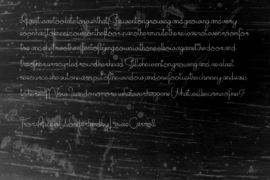 Alas! it was too late to wish that! She went on growing, and growing, and very
soon had to kneel down on the floor: in another minute there was not even room for
this, and she tried the effect of lying down with one elbow against the door, and
the other arm curled round her head. Still she went on growing, and, as a last
resource, she put one arm out of the window, and one foot up the chimney, and said
to herself "Now I can do no more, whatever happens. What will become of me?"
From Alice in Wonderland by Lewis Carroll